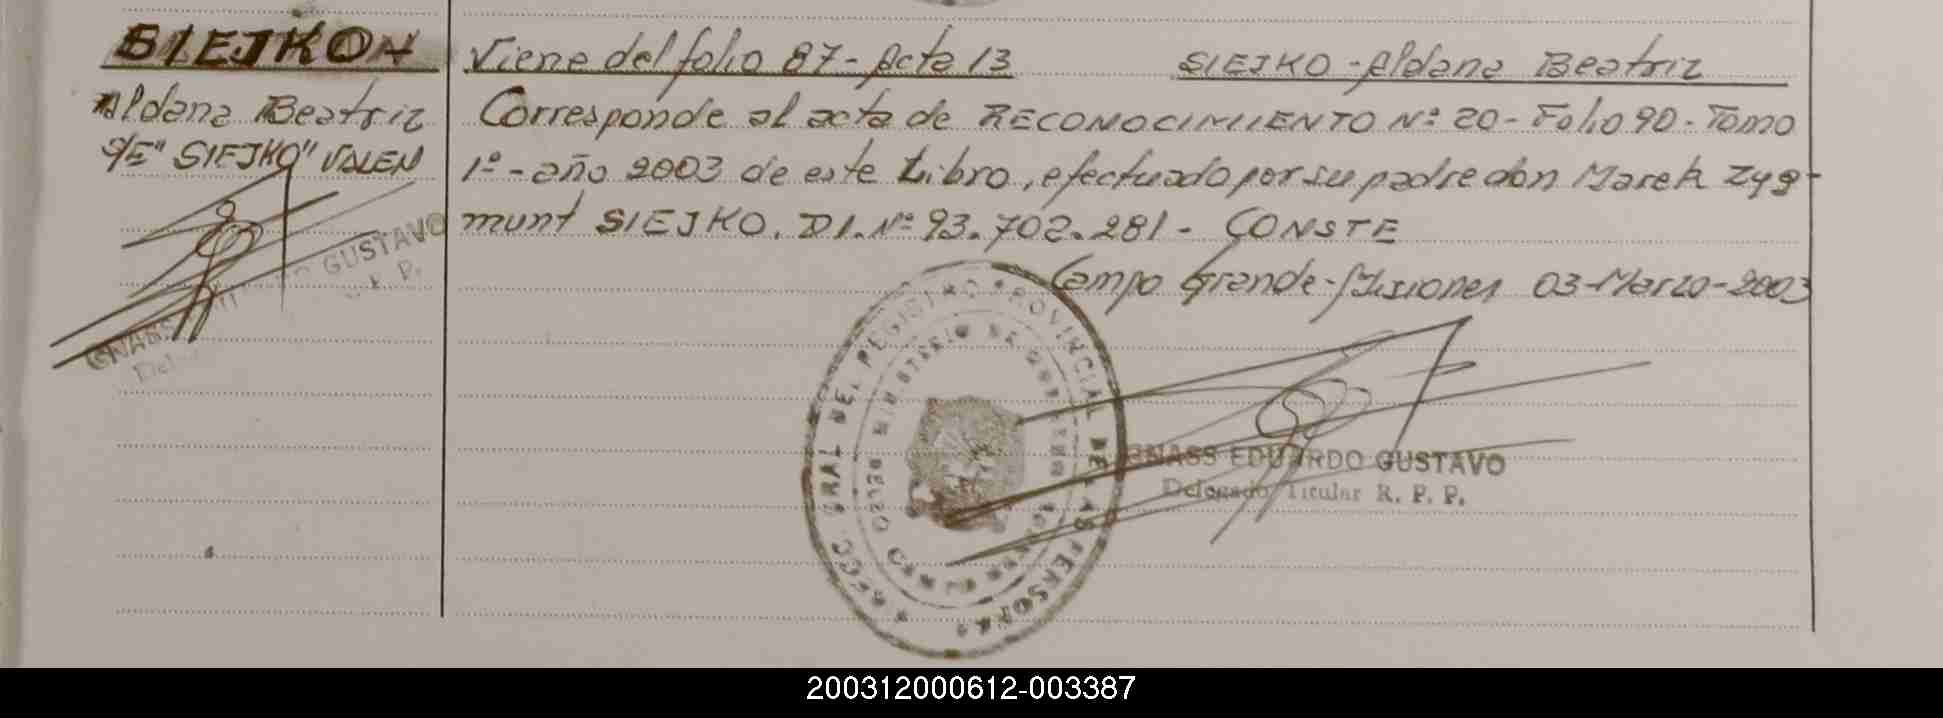 SIEJKO
Aldana Beatriz
S/E "SIEJKO" VALEN
GUSTAVO
Viene del folio 87 - Acta 13 SIEJKO - Aldana Beatriz
Corresponde al acta de RECONOCIMIENTO Nº 20 - Folio 90 - Tomo
1º - año 2003 de este Libro, efectuado por su padre don Marek Zyg-
munt SIEJKO. D.I. Nº 93.702.281 - CONSTE
Campo Grande - Misiones 03 - Marzo - 2003
GRAL DEL REGISTRO PROVINCIAL DE LAS PERSONAS
MINISTERIO DE GOBIERNO
GNASS EDUARDO GUSTAVO
Delegado Titular R. P. P.
200312000612-003387